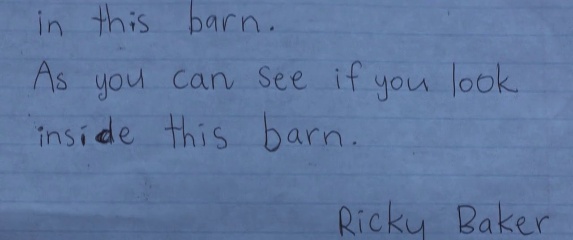 in this barn.
As you can see if you look
inside this barn.
Ricky Baker